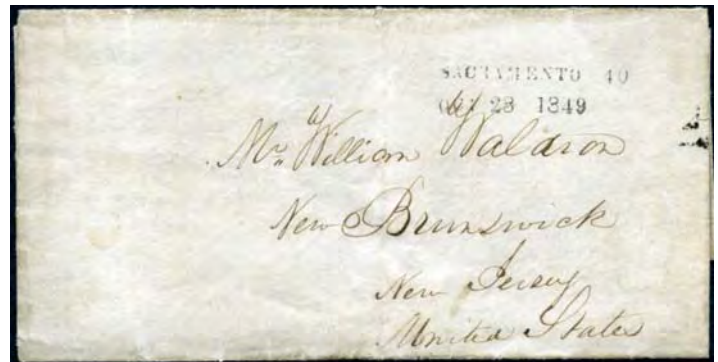 SACRAMENTO 40
OCT 28 1849
Mr. William Waldron
New Brunswick
New Jersey
United States